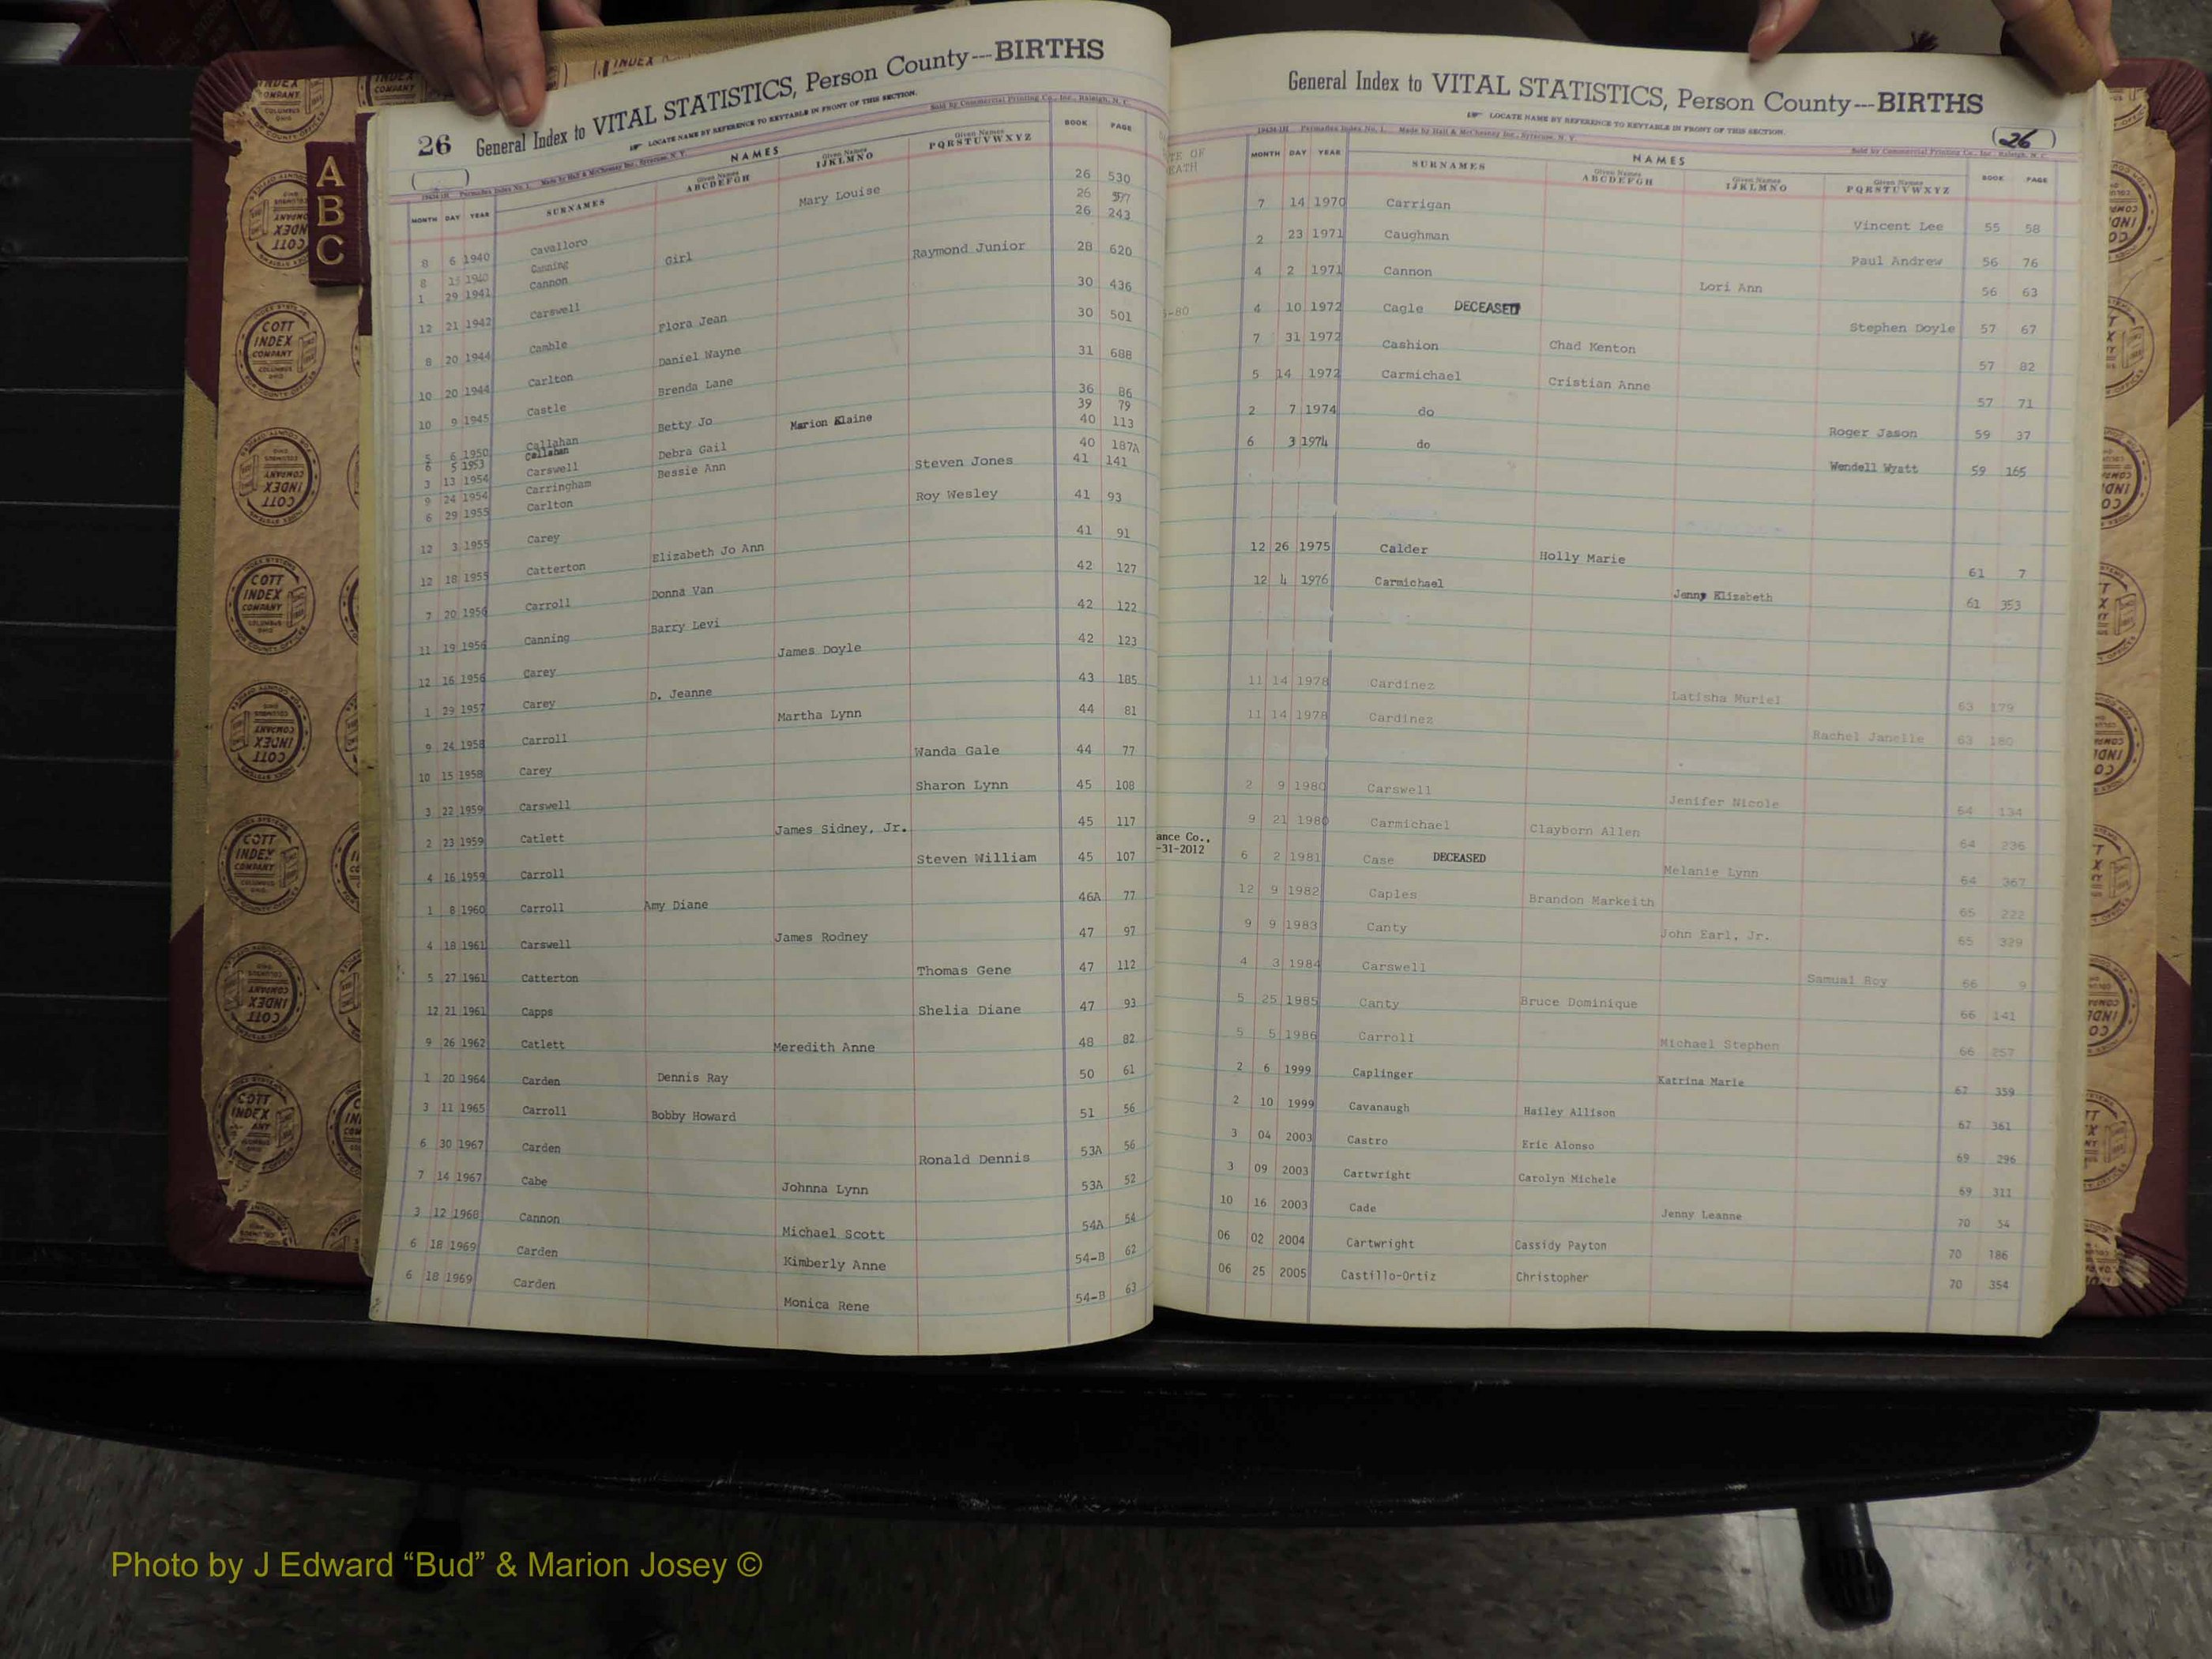 26 General Index to VITAL STATISTICS, Person County---BIRTHS
LOCATE NAME BY REFERENCE TO KEYTABLE IN FRONT OF THIS SECTION.
Made by Hall & McChesney Inc., Syracuse, N. Y. Sold by Commercial Printing Co., Inc., Raleigh, N. C.
A
B
C
NAMES
MONTH DAY YEAR SURNAMES Given Names ABCDEFGH Given Names IJKLMNO Given Names PQRSTUVWXYZ BOOK PAGE
8 6 1940 Cavalloro Mary Louise 26 530
8 15 1940 Canning Girl 26 597
1 29 1941 Cannon 26 243
12 21 1942 Carswell Raymond Junior 28 620
8 20 1944 Camble Flora Jean 30 436
10 20 1944 Carlton Daniel Wayne 30 501
10 9 1945 Castle Brenda Lane 31 688
5 6 1950 Callahan Betty Jo 36 86
6 5 1953 Callahan Marion Elaine 39 79
3 13 1954 Carswell Debra Gail 40 113
9 24 1954 Carringham Bessie Ann 40 187A
6 29 1955 Carlton Steven Jones 41 141
12 3 1955 Carey Roy Wesley 41 93
12 18 1955 Catterton Elizabeth Jo Ann 41 91
7 20 1956 Carroll Donna Van 42 127
11 19 1956 Canning Barry Levi 42 122
12 16 1956 Carey James Doyle 42 123
1 29 1957 Carey D. Jeanne 43 185
9 24 1958 Carroll Martha Lynn 44 81
10 15 1958 Carey Wanda Gale 44 77
3 22 1959 Carswell Sharon Lynn 45 108
2 23 1959 Catlett James Sidney, Jr. 45 117
4 16 1959 Carroll Steven William 45 107
1 8 1960 Carroll Amy Diane 46A 77
4 18 1961 Carswell James Rodney 47 97
5 27 1961 Catterton Thomas Gene 47 112
12 21 1961 Capps Shelia Diane 47 93
9 26 1962 Catlett Meredith Anne 48 82
1 20 1964 Carden Dennis Ray 50 61
3 11 1965 Carroll Bobby Howard 51 56
6 30 1967 Carden Ronald Dennis 53A 56
7 14 1967 Cabe Johnna Lynn 53A 52
3 12 1968 Cannon Michael Scott 54A 54
6 18 1969 Carden Kimberly Anne 54-B 62
6 18 1969 Carden Monica Rene 54-B 63
General Index to VITAL STATISTICS, Person County---BIRTHS
LOCATE NAME BY REFERENCE TO KEYTABLE IN FRONT OF THIS SECTION.
(26)
Made by Hall & McChesney Inc., Syracuse, N. Y. Sold by Commercial Printing Co., Inc., Raleigh, N. C.
NAMES
MONTH DAY YEAR SURNAMES Given Names ABCDEFGH Given Names IJKLMNO Given Names PQRSTUVWXYZ BOOK PAGE
7 14 1970 Carrigan Vincent Lee 55 58
2 23 1971 Caughman Paul Andrew 56 76
4 2 1971 Cannon Lori Ann 56 63
-80 4 10 1972 Cagle DECEASED Stephen Doyle 57 67
7 31 1972 Cashion Chad Kenton 57 82
5 14 1972 Carmichael Cristian Anne 57 71
2 7 1974 do Roger Jason 59 37
6 3 1974 do Wendell Wyatt 59 165
12 26 1975 Calder Holly Marie 61 7
12 4 1976 Carmichael Jenny Elizabeth 61 353
11 14 1978 Cardinez Latisha Muriel 63 179
11 14 1978 Cardinez Rachel Janelle 63 180
2 9 1980 Carswell Jenifer Nicole 64 134
9 21 1980 Carmichael Clayborn Allen 64 236
ance Co.,
-31-2012
6 2 1981 Case DECEASED Melanie Lynn 64 367
12 9 1982 Caples Brandon Markeith 65 222
9 9 1983 Canty John Earl, Jr. 65 329
4 3 1984 Carswell Samual Roy 66 9
5 25 1985 Canty Bruce Dominique 66 141
5 5 1986 Carroll Michael Stephen 66 257
2 6 1999 Caplinger Katrina Marie 67 359
2 10 1999 Cavanaugh Hailey Allison 67 361
3 04 2003 Castro Eric Alonso 69 296
3 09 2003 Cartwright Carolyn Michele 69 311
10 16 2003 Cade Jenny Leanne 70 54
06 02 2004 Cartwright Cassidy Payton 70 186
06 25 2005 Castillo-Ortiz Christopher 70 354
COTT INDEX COMPANY COLUMBUS OHIO
Photo by J Edward “Bud” & Marion Josey ©